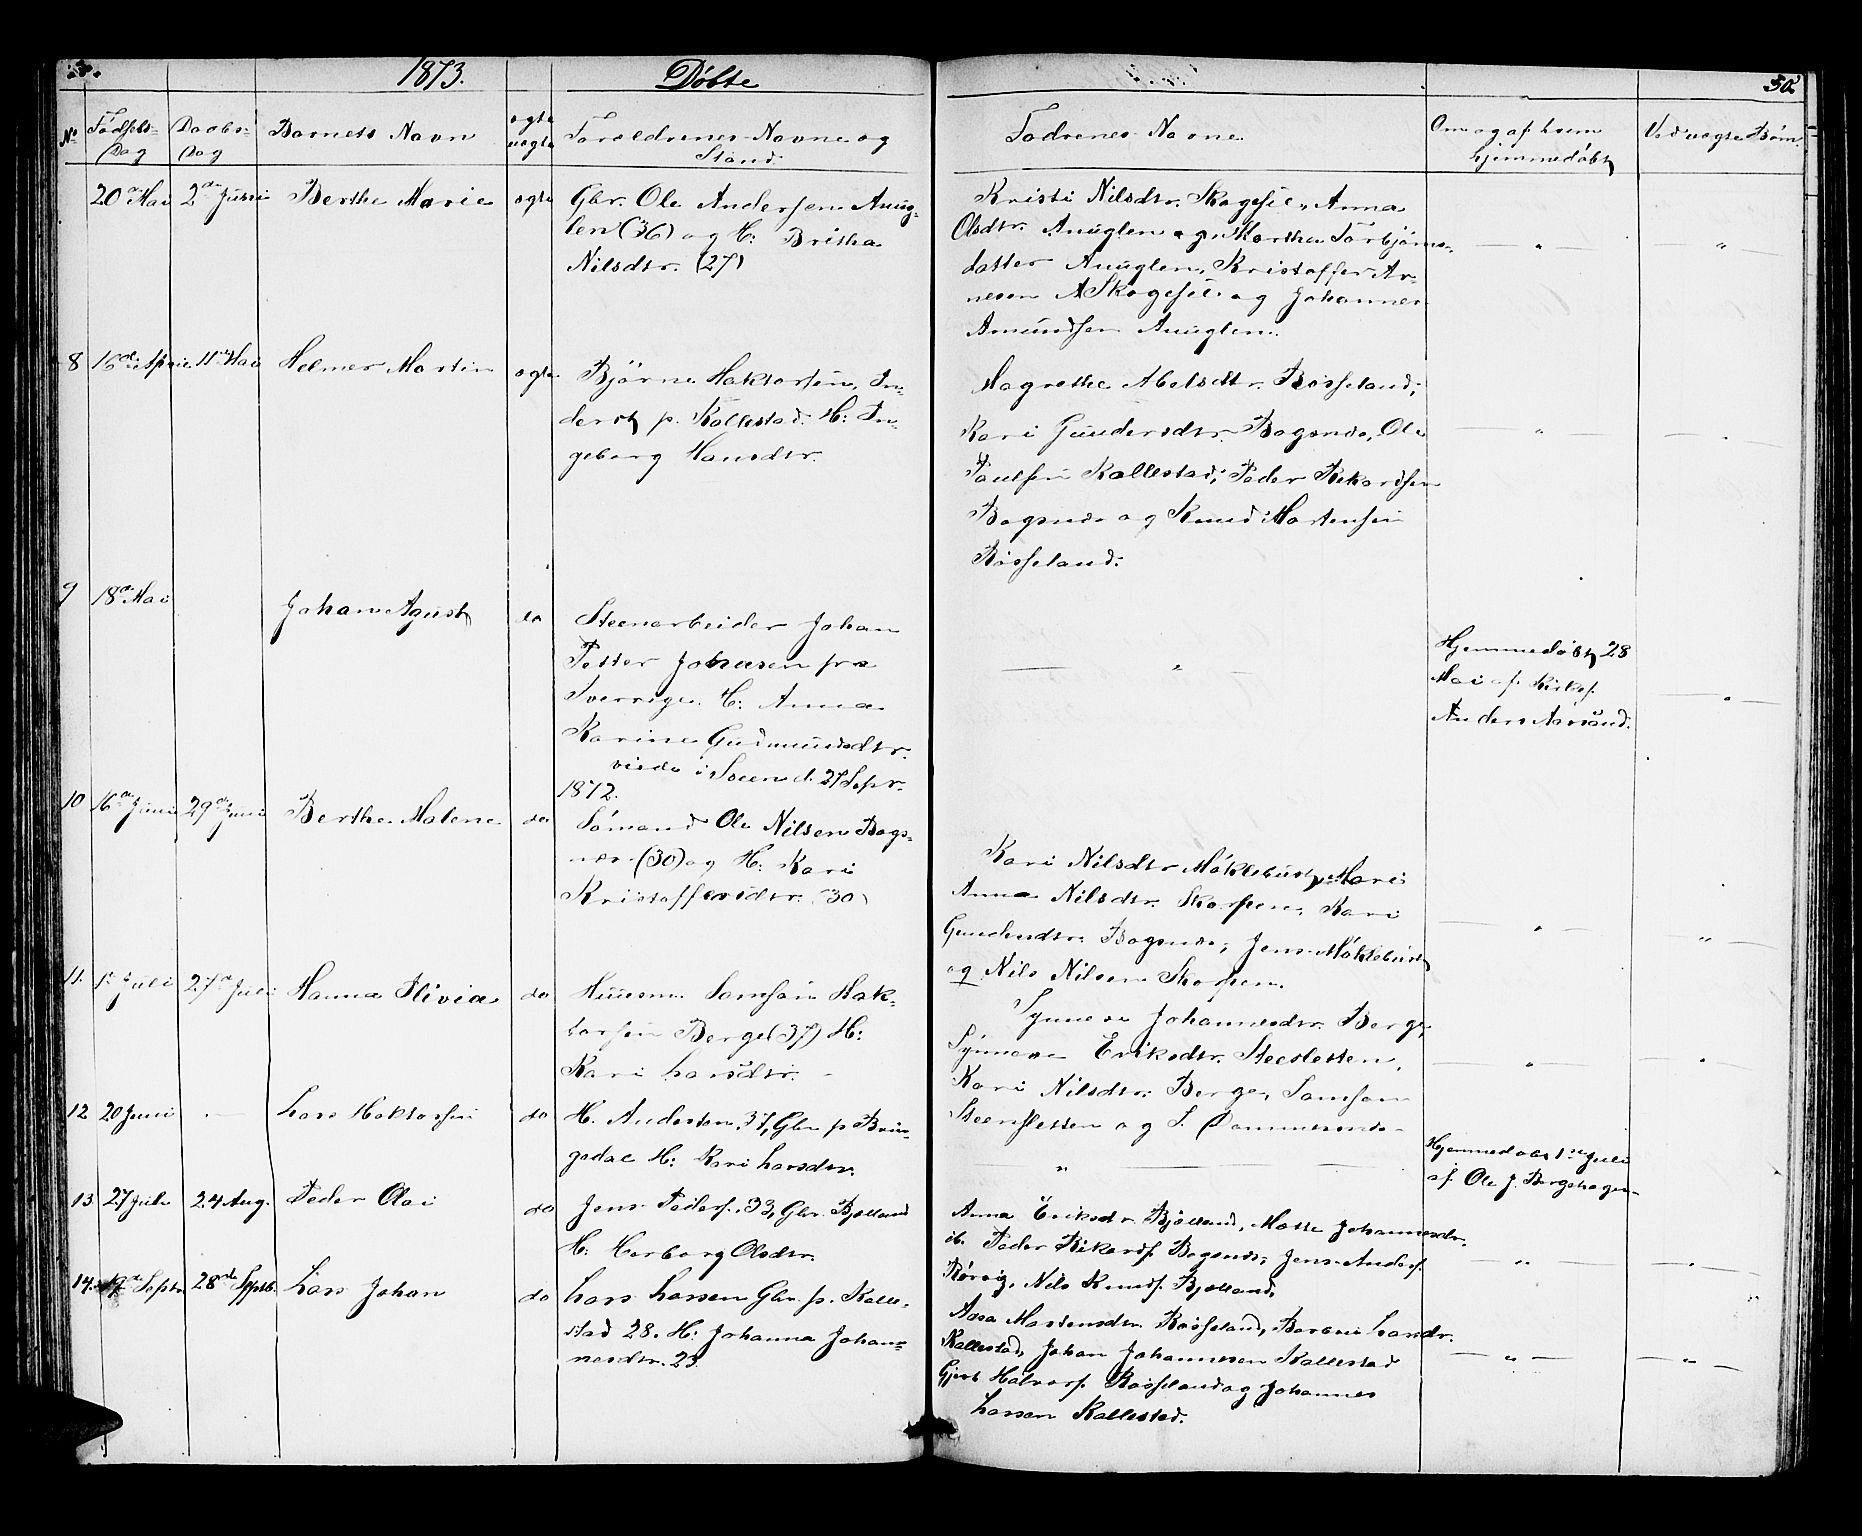 1873.
Døbte
50.
No
Fødsels-
Dag
Daabs-
Dag
Barnets Navn
ægte
uægte
Forældrenes Navne og
Stand.
Fadrenes Navne
Om og af hvem
hjemmedøbt
Ved uægte Børn.
20de Mai 2den Juni Berthe Marie ægte
Gbr. Ole Andersen Anug-
len (36) og H: Britha
Nilsdtr. (27)
Kristi Nilsdtr. Anna
Olsdtr. Anuglen og Marthe Torbjörns-
datter Anuglen, Kristoffer Ar-
nesen og Johannes
Amundsen Anuglen.
8 16de April 11te Mai Helmer Martin ægte
Björne Haktorsen, In-
derst p. Kallestad. H: In-
geborg Hansdtr.
Magrethe Abelsdtr. Røsseland,
Kari Gundersdtr. Bagsnes, Ole
Paulsen Kallestad, Peder Rikardsen
Bagsnes og Knud Mortensen
Røsseland.
9 18de Mai Johan Agust do
Steenarbeider Johan
Petter Johnsen fra
Sverrige. H: Anna
Karine Gudmundsdtr.
viede i Sveen d. 27 Sepr.
1872.
Hjemmedøbt 28
Mai af Kirks.
Anders Aarsand.
10 16de Juni 29de Juni Berthe Malene do
Sömand Ole Nilsen Bags-
nes (30) og H: Kari
Kristoffersdtr. (30)
Kari Nilsdtr. Möklebust, Mari
Anna Nilsdtr. Skorpen, Kari
Gundersdtr. Bagsnes, Jens Möklebust
og Nils Nilsen Skorpen.
11. 1ste Juli 27de Juli Hanna Olivia do
Huusm. Samson Hak-
torsen Berge (37) H:
Kari Larsdtr.
Synneve Johannesdtr. Berge,
Synneve Eriksdtr. Steensletten,
Kari Nilsdtr. Berge, Samson
Steensletten og S.
12 20 Juni Lars Haktorsen do
H. Andersen, 37, Gbr. p. Brin-
gedal H: Kari Larsdtr.
Hjemmedøbt 1ste Juli
af Ole J. Bergshagen
13 27 Juli 24 Aug. Peder Olai do
Jens Peders. 33, Gbr. Bjelland
H: Herborg Olsdtr.
Anna Eriksdtr. Bjelland, Mette Johannesdtr.
ib. Peder Rikards. Bagsnes, Jens Anders.
Rørvig, Nils Knuds. Bjelland.
14. 19de Septr. 28de Septb. Lars Johan do
Lars Larsen Gbr. p. Kalle-
stad 28. H: Johanna Johan-
nesdtr. 23.
Aasa Mortensdtr. Røsseland, Barbro Larsdr.
Kallestad, Johan Johannesen Kallestad
Gjert Halvors. Røsseland og Johannes
Larsen Kallestad.